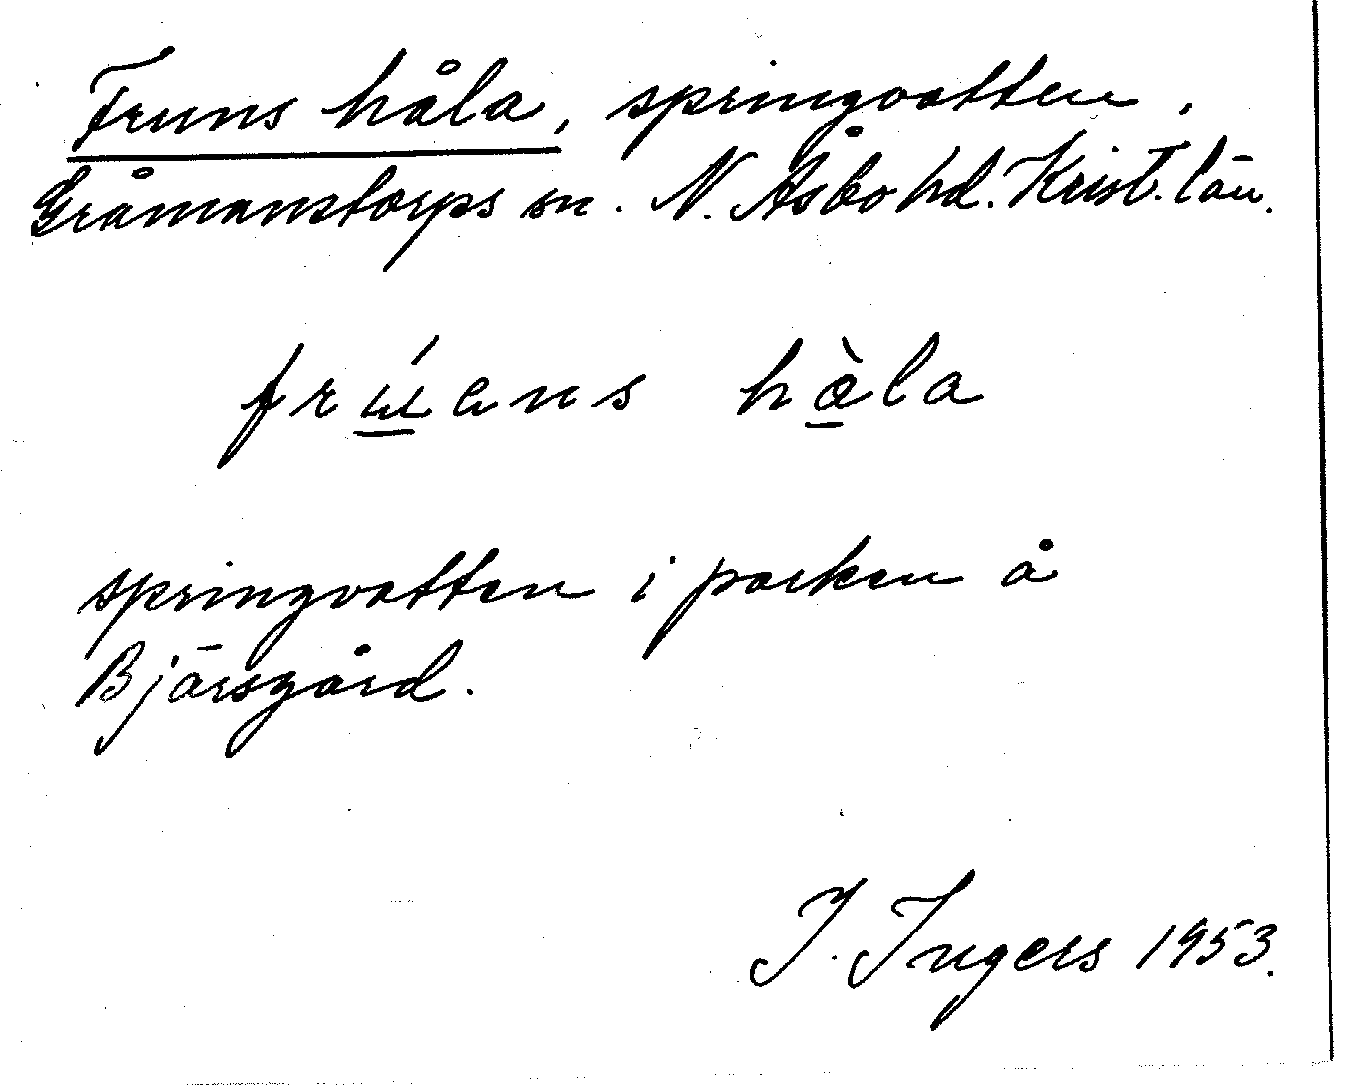 Fruns håla, springvatten,
Gråmanstorps sn. N. Åsbo hd. Krist. län.
frúens hàla
springvatten i parken å
Bjärsgård.
I. Ingers 1953.